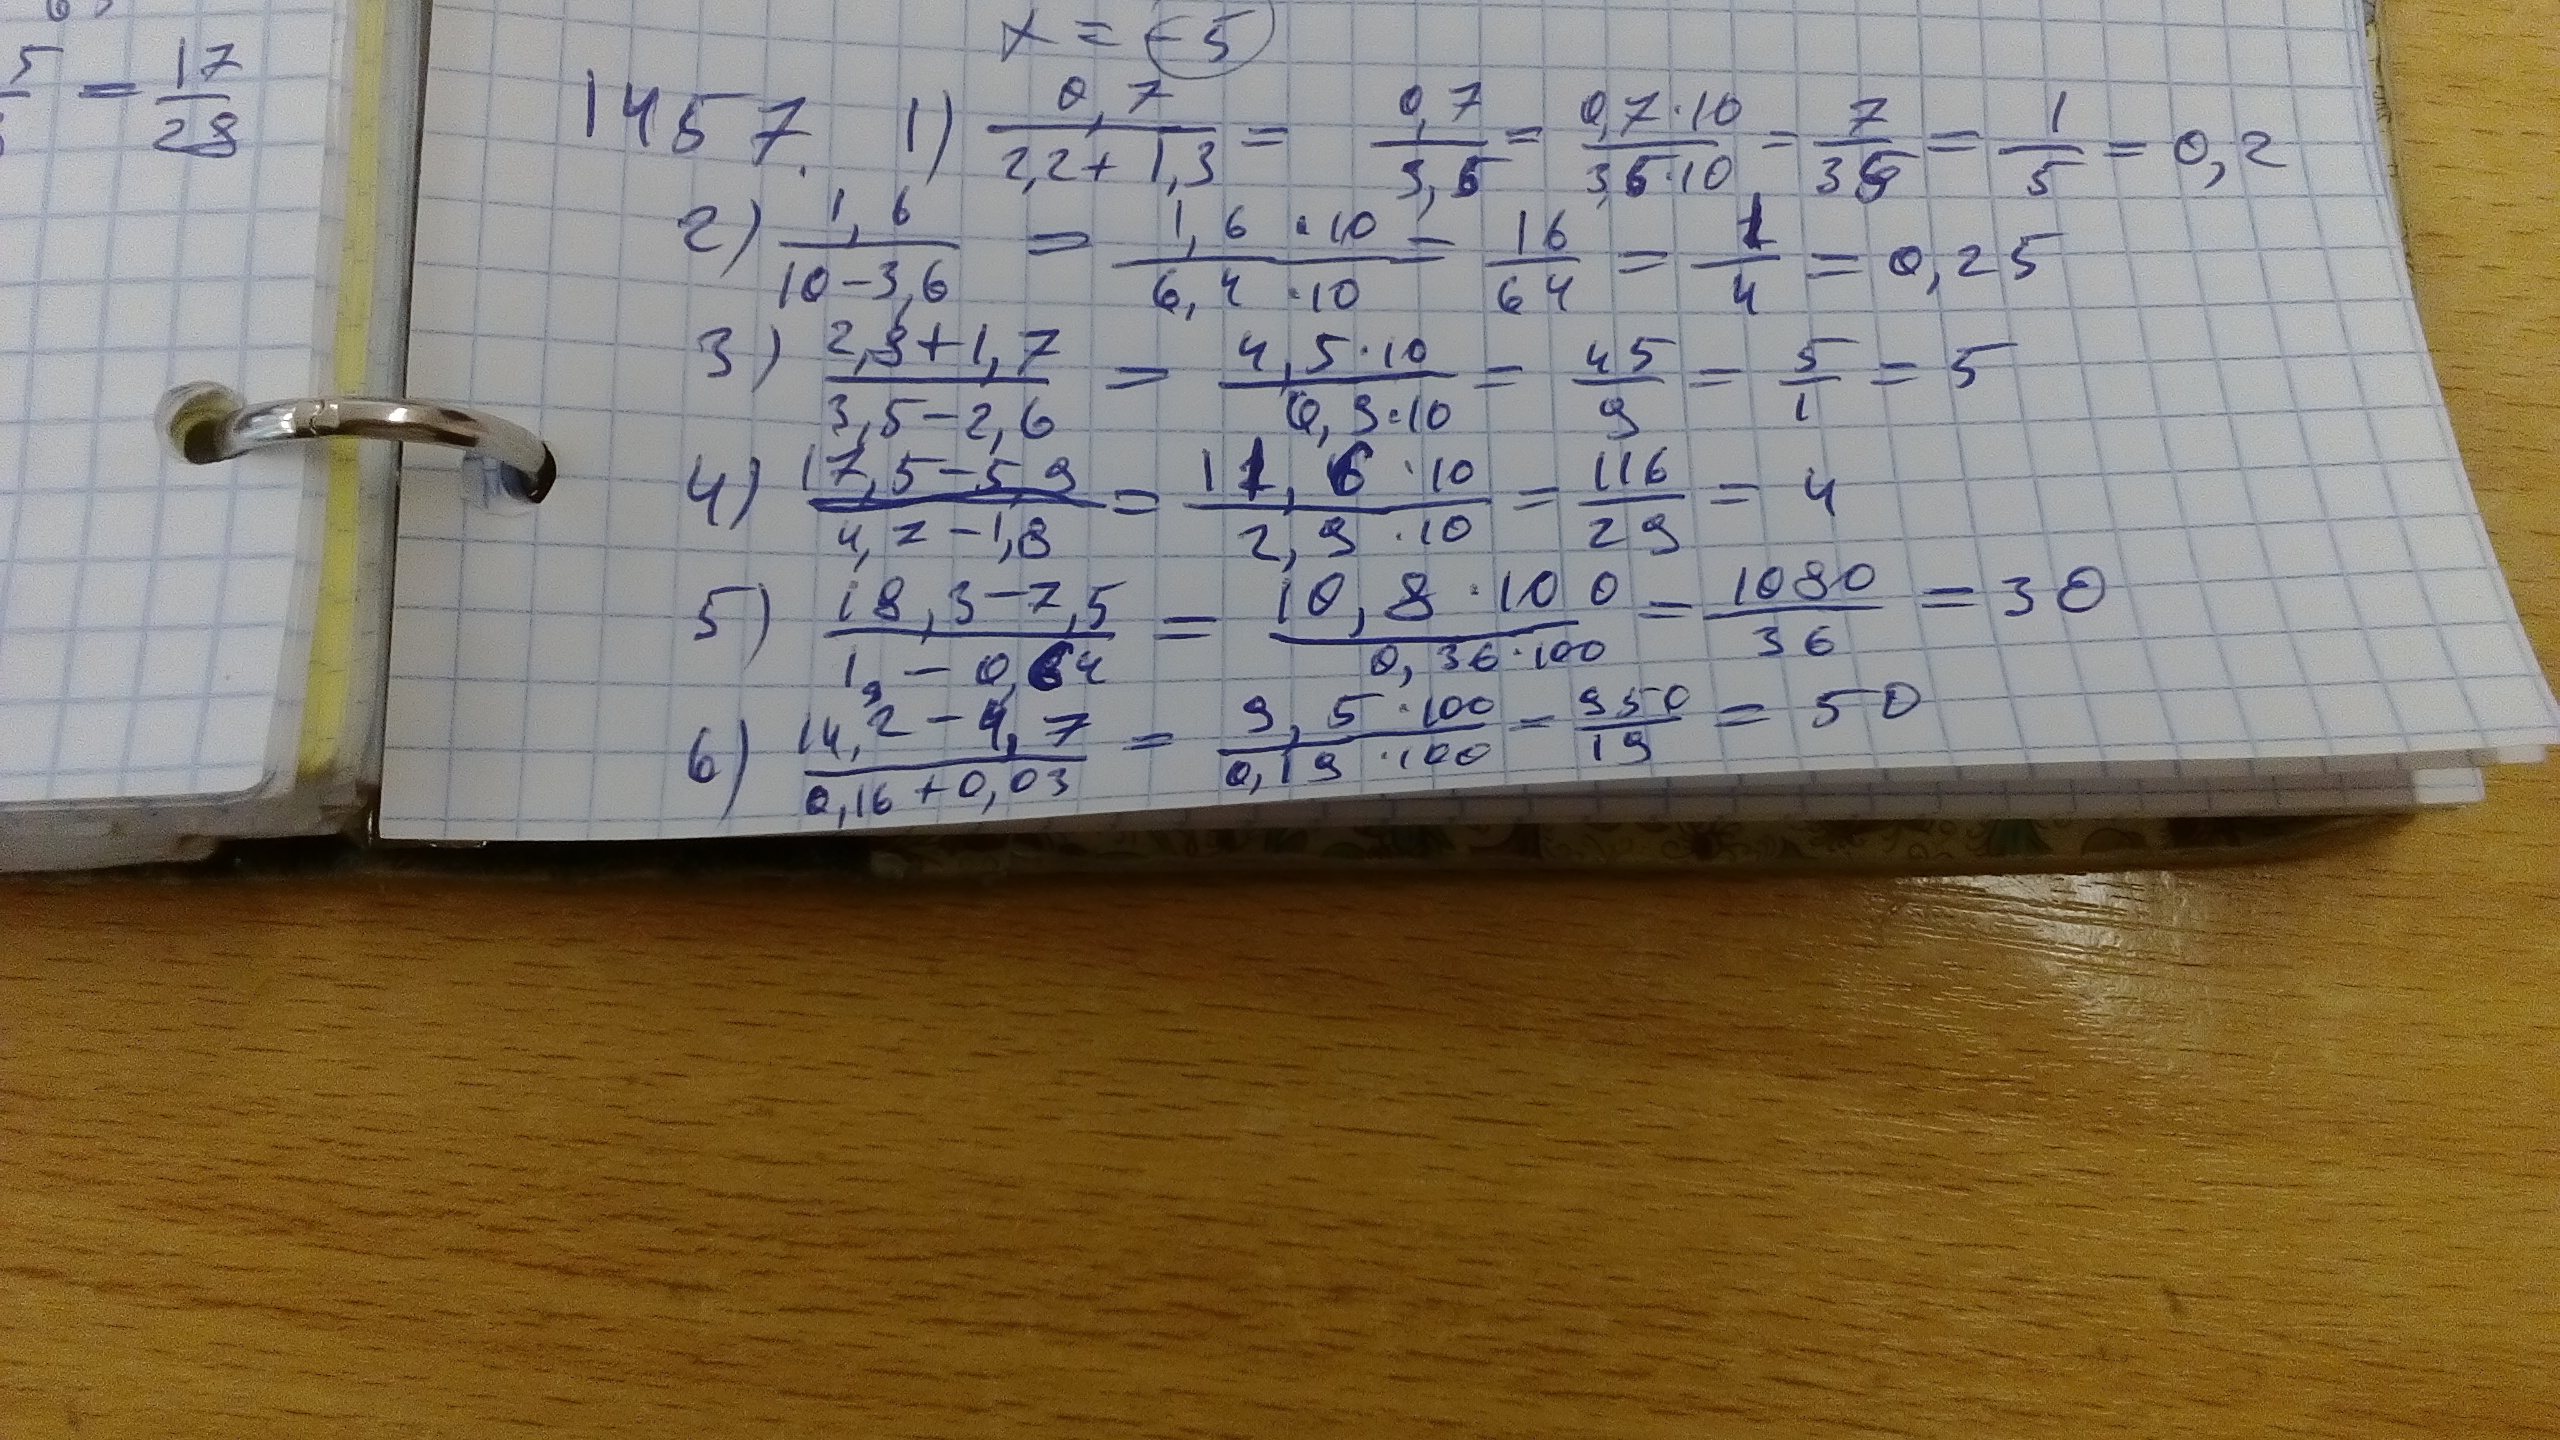 5 = 17/28
x = -5
1457. 1) 0,7/(2,2+1,3) = 0,7/3,5 = 0,7·10/3,5·10 = 7/35 = 1/5 = 0,2
2) 1,6/(10-3,6) = 1,6·10/6,4·10 = 16/64 = 1/4 = 0,25
3) (2,8+1,7)/(3,5-2,6) = 4,5·10/0,9·10 = 45/9 = 5/1 = 5
4) (17,5-5,9)/(4,7-1,8) = 11,6·10/2,9·10 = 116/29 = 4
5) (18,3-7,5)/(1,-0,64) = 10,8·100/0,36·100 = 1080/36 = 30
6) (14,2-4,7)/(0,16+0,03) = 9,5·100/0,19·100 = 950/19 = 50